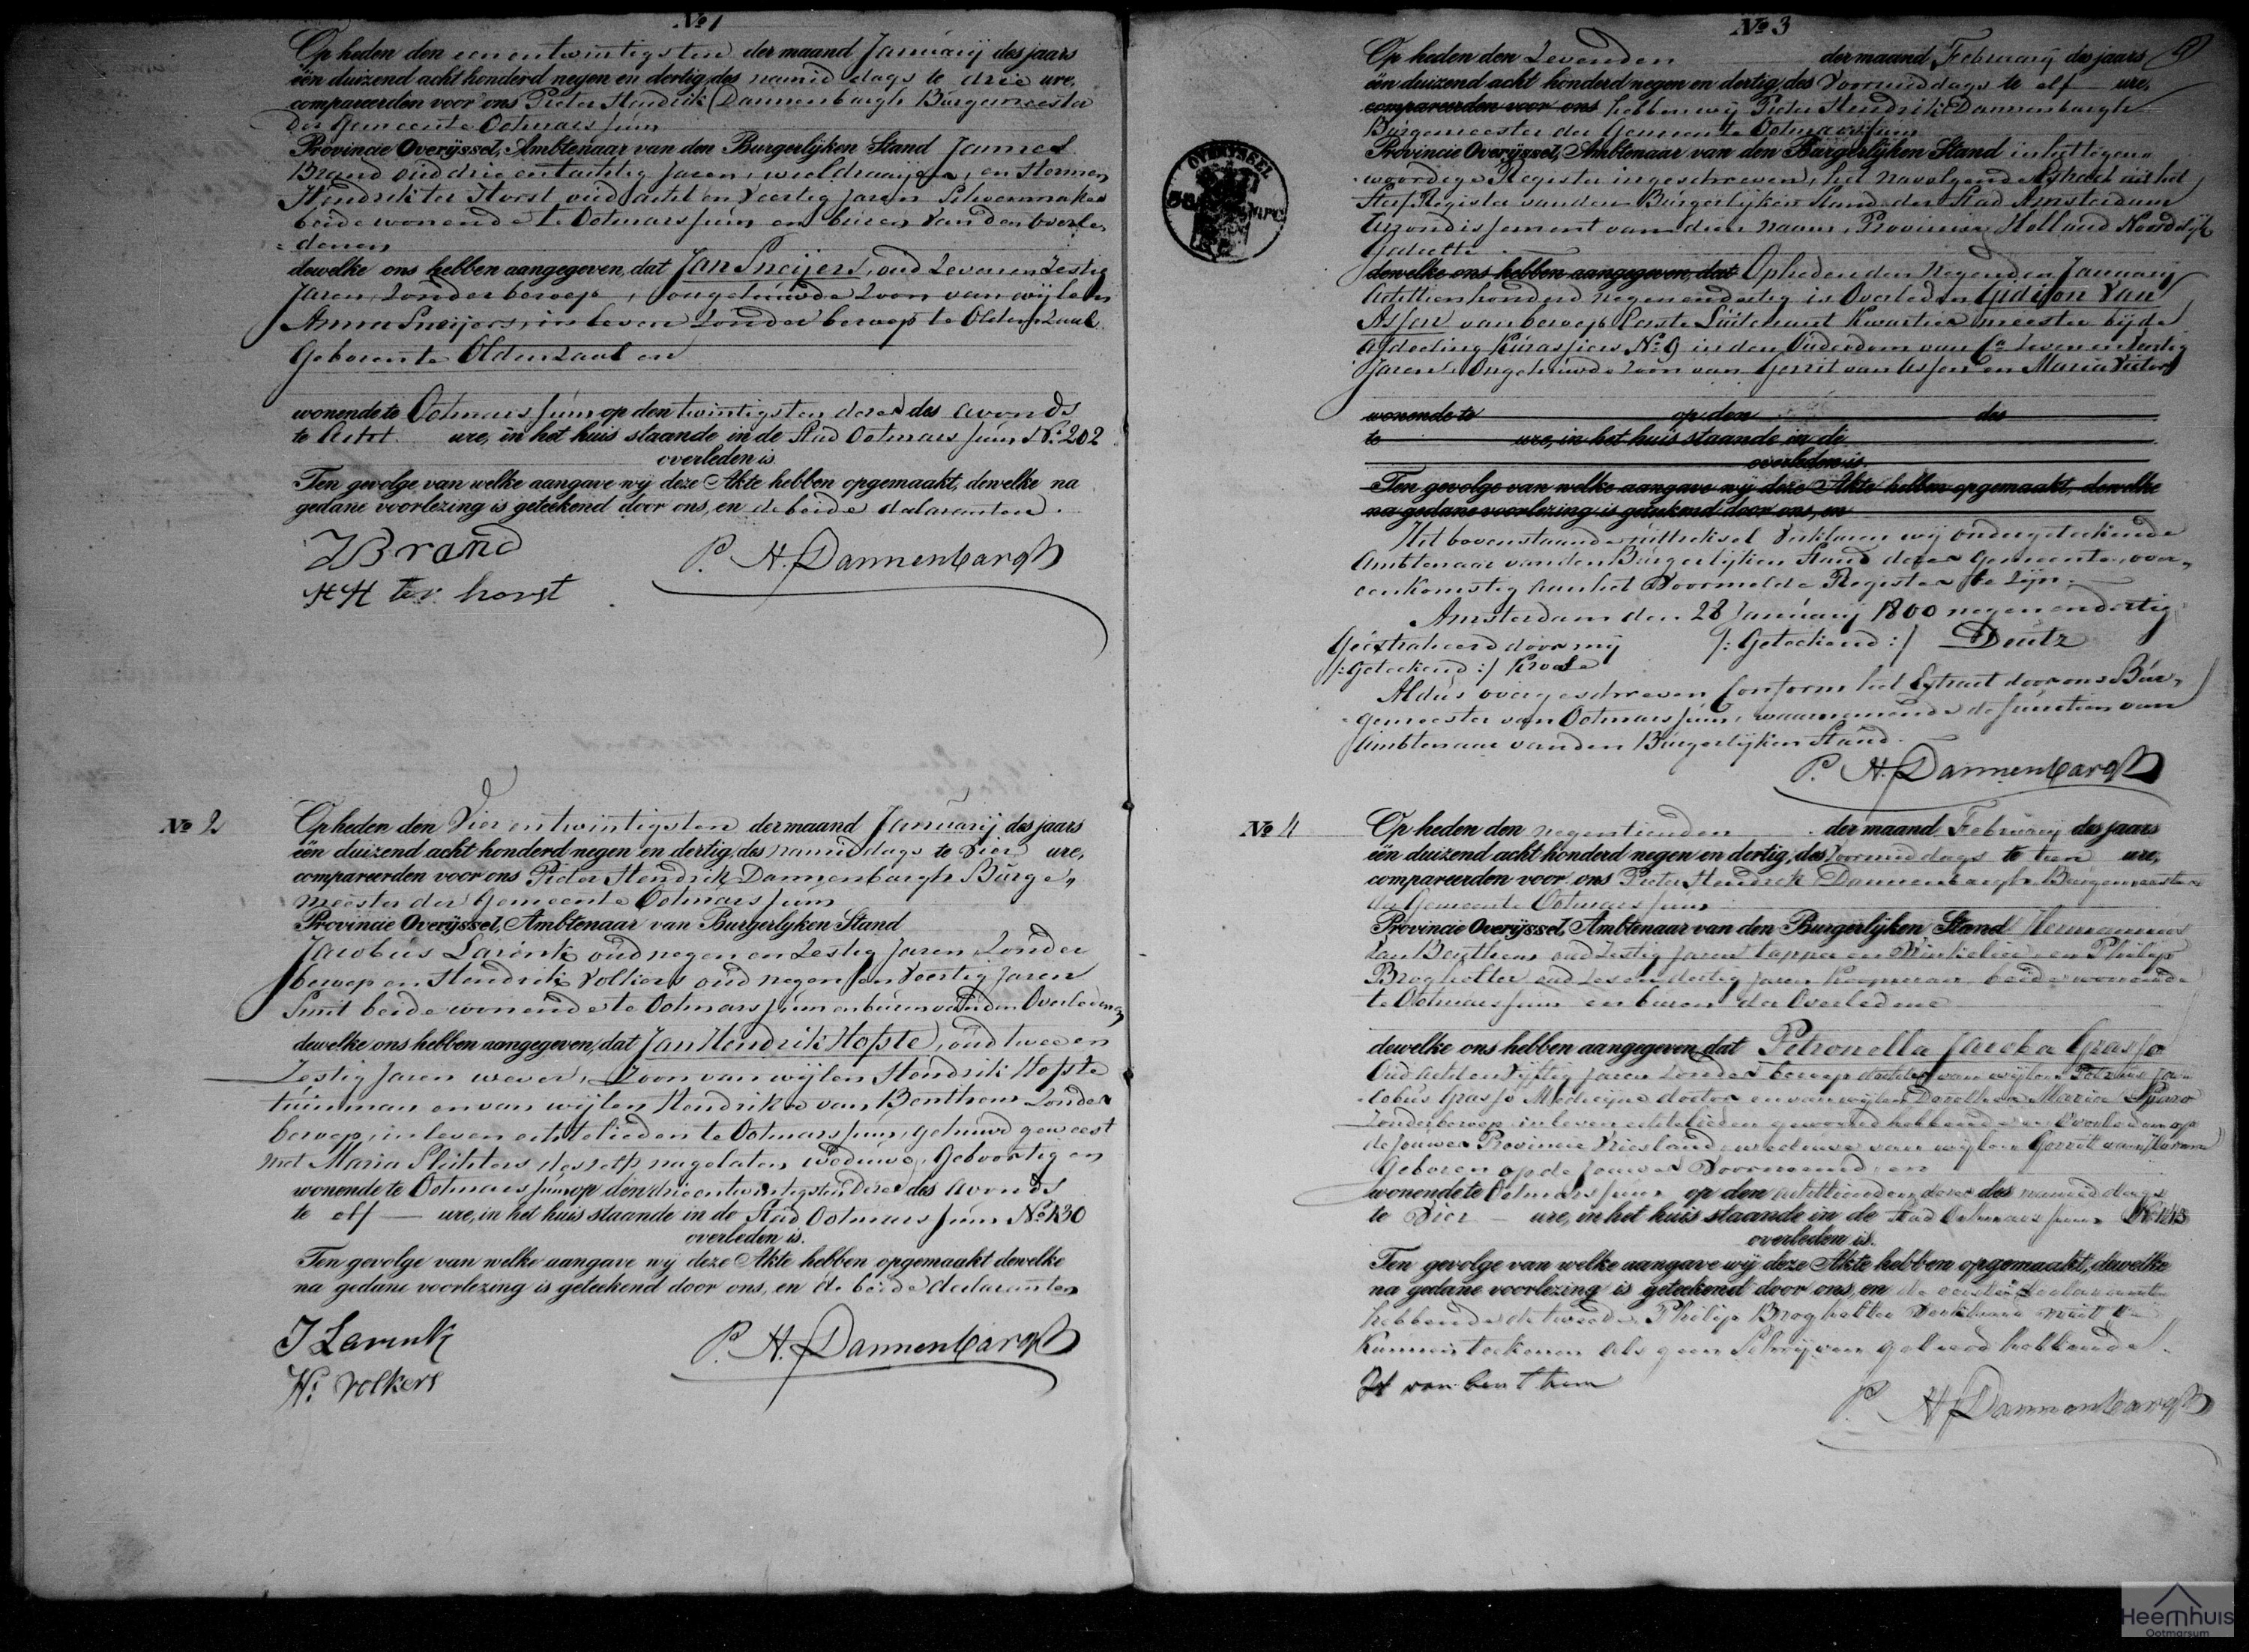 No 1
Op heden den eenentwintigsten der maand Januarij des jaars
één duizend acht honderd negen en dertig, des namiddags te drie ure,
compareerden voor ons Pieter Hendrik Dannenbargh Burgemeester
der Gemeente Ootmarssum
Provincie Overijssel, Ambtenaar van den Burgerlijken Stand Jannes
Brand oud drie en tachtig Jaren, wieldraaijer, en Hermen
Hendrik ter Horst oud acht en Veertig Jaren Schoenmaker
beide wonende te Ootmarssum en buren van den overle-
denen
dewelke ons hebben aangegeven, dat Jan Sneijers, oud Zeven en Zestig
Jaren, Zonder beroep, ongehuwde Zoon van wijlen
Anna Sneijers, in leven Zonder beroep te Oldenzaal
Geboren te Oldenzaal en
wonende te Ootmarssum op den twintigsten dezer des avonds
te Acht ure, in het huis staande in de Stad Ootmarssum No 202
overleden is.
Ten gevolge van welke aangave wij deze Akte hebben opgemaakt, dewelke na
gedane voorlezing is geteekend door ons, en de beide dclaranten.
J Brand
P. H. Dannenbargh
HH ter horst
No 2
Op heden den Vier entwintigsten der maand Januarij des jaars
één duizend acht honderd negen en dertig, des namiddags te Vier ure,
compareerden voor ons Pieter Hendrik Dannenbargh Burge-
meester der Gemeente Ootmarssum
Provincie Overijssel, Ambtenaar van Burgerlyken Stand
Jacobus Larink oud negen en Zestig Jaren Zonder
beroep en Hendrik Volkers oud negen en Veertig Jaren
Smit beide wonende te Ootmarssum en buren van den Overledenen
dewelke ons hebben aangegeven, dat Jan Hendrik Hofste, oud twee en
Zestig Jaren wever, Zoon van wijlen Hendrik Hofste
tuinman en van wijlen Hendrika van Benthem Zonder
beroep, in leven echtelieden te Ootmarssum, gehuwd geweest
met Maria Slichters deszelfs nagelaten weduwe, Geboortig en
wonende te Ootmarssum op den drieentwintigsten dezer des avonds
te elf ure, in het huis staande in de Stad Ootmarssum No 130
overleden is.
Ten gevolge van welke aangave wij deze Akte hebben opgemaakt dewelke
na gedane voorlezing is geteekend door ons, en de beide declaranten
J Larink
P. H. Dannenbargh
H: Volkers
No 3
Op heden den Zevenden der maand Februarij des jaars
één duizend acht honderd negen en dertig, des Voormiddags te elf ure,
compareerden voor ons hebben wij Pieter Hendrik Dannenbargh
Burgemeester der Gemeente Ootmarssum
Provincie Overijssel, Ambtenaar van den Burgerlijken Stand in het tegen-
woordige Register ingeschreven, het navolgende Extract uit het
Sterf Register van den Burgerlijken Stand der Stad Amsterdam
Arrondissement van dien naam, Provincie Holland Noordelijk
Gedeelte
dewelke ons hebben aangegeven, dat Op heden den Negenden Januarij
Achttienhonderd negenendertig is Overleden Gidion Van
Assen van beroep Eerste Luitenant Kwartiermeester bij de
afdeeling Kurassiers No 9 in den Ouderdom van Ca Zeven en Veertig
Jaren, Ongehuwde Zoon van Gerrit van Assen en Maria Victor
wonende te op den des
te ure, in het huis staande in de
overleden is.
Ten gevolge van welke aangave wij deze Akte hebben opgemaakt, dewelke
na gedane voorlezing is geteekend door ons, en
Het bovenstaande uittreksel Verklaren wij ondergeteekende
Ambtenaar van den Burgerlijken Stand dezer Gemeente, over-
eenkomstig aan het Voormelde Register te Zijn.
Amsterdam den 28 Januarij 1800 negenendertig
Geextraheerd door mij /: Geteekend :/ Deutz
/: Geteekend :/
Aldus overgeschreven Conform het Extract door ons Bur-
gemeester van Ootmarssum, waarnemende de functien van
Ambtenaar van den Burgerlijken Stand.
P. H. Dannenbargh
OVERYSSEL
No 4
Op heden den negentienden der maand Februarij des jaars
één duizend acht honderd negen en dertig, des Voormiddags te tien ure,
compareerden voor ons Pieter Hendrik Dannenbargh Burgemeester
der Gemeente Ootmarssum
Provincie Overijssel, Ambtenaar van den Burgerlijken Stand Hermannus
van Benthem oud Zestig Jaren tapper en Winkelier, en Philip
Broghotter oud Zes en dertig Jaren Koopman beide wonende
te Ootmarssum en buren der Overledene
dewelke ons hebben aangegeven, dat Petronella Jacoba Grasso
Oud acht en Vijftig Jaren Zonder beroep dochter van wijlen Petrus Ja-
cobus Grasso Medicijne doctor en van wijlen Dorothea Maria
Zonder beroep, in leven echtelieden gewoond hebbende en Overleden op
de Jouwer Provincie Vriesland, weduwe van wijlen Gerrit van Haren
Geboren op de Jouwer Voornoemd, en
wonende te Ootmarssum op den achttienden dezer des namiddags
te Vier ure, in het huis staande in de Stad Ootmarssum
overleden is.
Ten gevolge van welke aangave wij deze Akte hebben opgemaakt, dewelke
na gedane voorlezing is geteekend door ons, en de eerste declarant
hebbende de tweede Philip Broghotter Verklaard niet te
Kunnen teekenen als geen Schrijven geleerd hebbende.
H van benthem
P. H. Dannenbargh
Heemhuis
Ootmarsum